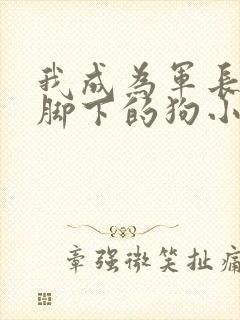 我成为军长
脚下的狗小
章强微笑扯痛